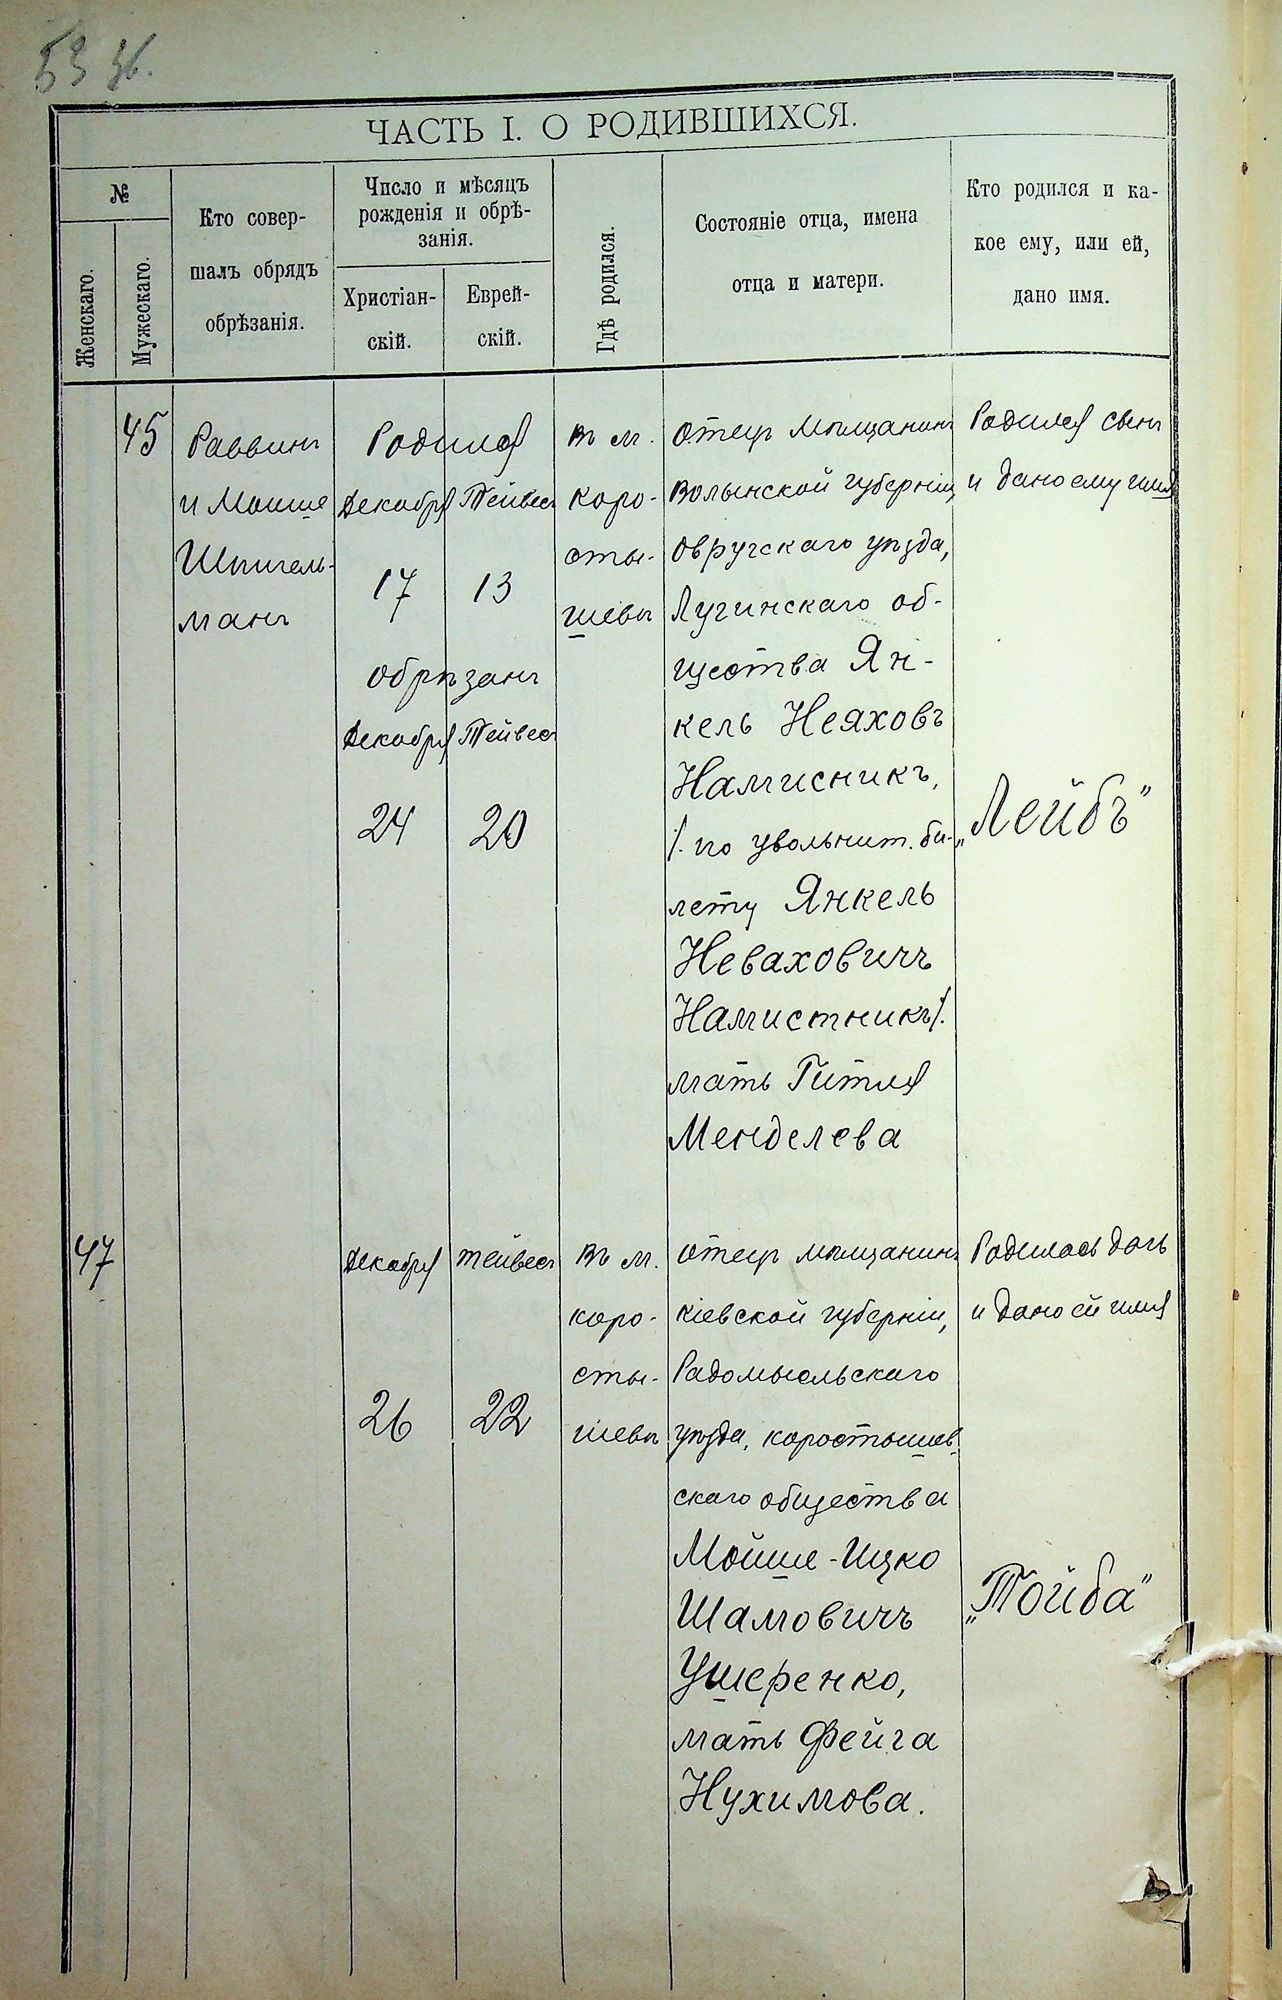 53 зв.
ЧАСТЬ I. О РОДИВШИХСЯ.
№
Женскаго.
Мужескаго.
Кто совер-
шалъ обрядъ
обрѣзанія.
Число и мѣсяцъ
рожденія и обрѣ-
занія.
Христіан-
скій.
Еврей-
скій.
Гдѣ родился.
Состояніе отца, имена
отца и матери.
Кто родился и ка-
кое ему, или ей,
дано имя.
45
Раввинъ
и Моише
Шпигель-
манъ
Родился
Декабря Тейвес
17 13
обрѣзанъ
Декабря Тейвес
24 20
въ м.
Коро-
сты-
шевѣ
Отецъ мѣщанинъ
Волынской губерніи,
Овручскаго уѣзда,
Лугинскаго об-
щества Ян-
кель Неяховъ
Намисникъ,
/. по увольнит. би-
лету Янкель
Неваховичъ
Намистникъ/.
мать Гитля
Менделева
Родился сынъ
и дано ему имя
„Лейбъ"
47
Декабря Тейвес
26 22
Въ м.
Коро-
сты-
шевѣ
Отецъ мѣщанинъ
Кіевской губерніи,
Радомысльскаго
уѣзда, Коростышев
скаго общества
Мойше-Ицко
Шамовичъ
Ушеренко,
мать Фейга
Нухимова.
Родилась дочь
и дано ей имя
„Тойба"